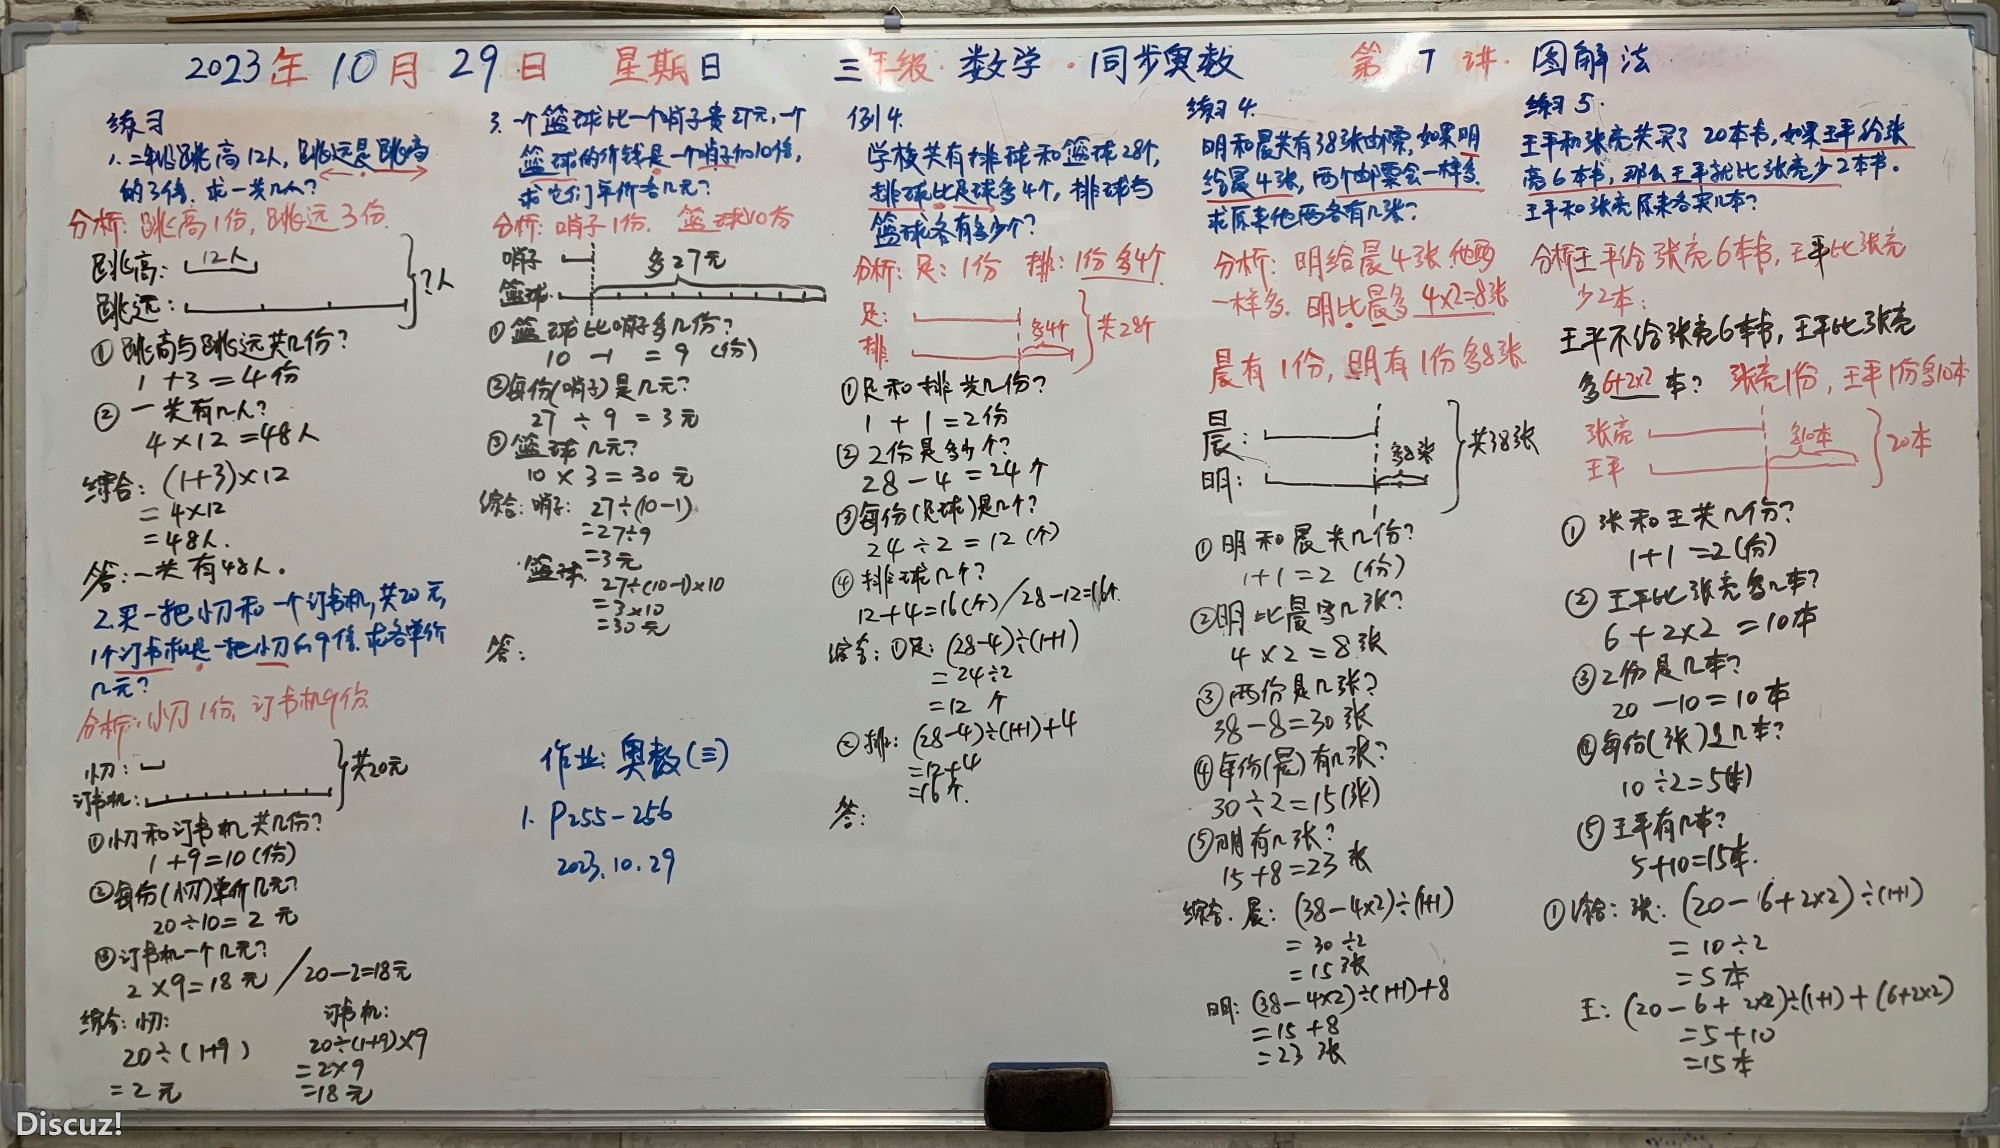 2023年10月29日 星期日 三年级·数学·同步奥数 第7讲·图解法
练习
1.二年级跳高12人,跳远是跳高
的3倍,求一共几人?
分析:跳高1份,跳远3份.
跳高: 12人
跳远:
?人
①跳高与跳远共几份?
1+3=4份
②一共有几人?
4×12=48人
综合:(1+3)×12
=4×12
=48人.
答:一共有48人。
2.买一把小刀和一个订书机,共20元,
1个订书机是一把小刀的9倍.求各单价
几元?
分析:小刀1份,订书机9份.
小刀:
订书机:
共20元
①小刀和订书机共几份?
1+9=10(份)
②每份(小刀)单价几元?
20÷10=2元
③订书机一个几元?
2×9=18元/20-2=18元
综合:小刀:
20÷(1+9)
=2元
订书机:
20÷(1+9)×9
=2×9
=18元
3.一个篮球比一个哨子贵27元,一个
篮球的价钱是一个哨子的10倍,
求它们单价各几元?
分析:哨子1份,篮球10份
哨子
多27元
篮球
①篮球比哨子多几份?
10-1=9(份)
②每份(哨子)是几元?
27÷9=3元
③篮球几元?
10×3=30元
综合:哨子:27÷(10-1)
=27÷9
=3元
篮球:27÷(10-1)×10
=3×10
=30元
答:
作业:奥数(三)
1.P255-256
2023.10.29
例4.
学校共有排球和篮球28个,
排球比足球多4个,排球与
篮球各有多少个?
分析:足:1份 排:1份多4个
足:
排:
多4个
共28个
①足和排共几份?
1+1=2份
②2份是多少个?
28-4=24个
③每份(足球)是几个?
24÷2=12(个)
④排球几个?
12+4=16(个)/28-12=16个.
综合:①足:(28-4)÷(1+1)
=24÷2
=12个
②排:(28-4)÷(1+1)+4
=12+4
=16个.
答:
练习4.
明和晨共有38张邮票,如果明
给晨4张,两个邮票会一样多.
求原来他两各有几张?
分析:明给晨4张,他两
一样多.明比晨多4×2=8张
晨有1份,明有1份多8张.
晨:
明:
多8张
共38张
①明和晨共几份?
1+1=2(份)
②明比晨多几张?
4×2=8张
③两份是几张?
38-8=30张
④每份(晨)有几张?
30÷2=15(张)
⑤明有几张?
15+8=23张
综合.晨:(38-4×2)÷(1+1)
=30÷2
=15张
明:(38-4×2)÷(1+1)+8
=15+8
=23张
练习5.
王平和张亮共买了20本书,如果王平给张
亮6本书,那么王平就比张亮少2本书。
王平和张亮原来各买几本?
分析王平给张亮6本书,王平比张亮
少2本:
王平不给张亮6本书,王平比张亮
多6+2×2本? 张亮1份,王平1份多10本
张亮
王平
多10本
20本
①张和王共几份?
1+1=2(份)
②王平比张亮多几本?
6+2×2=10本
③2份是几本?
20-10=10本
④每份(张)是几本?
10÷2=5(本)
⑤王平有几本?
5+10=15本.
①综合:张:(20-6+2×2)÷(1+1)
=10÷2
=5本
王:(20-6+2×2)÷(1+1)+(6+2×2)
=5+10
=15本
Discuz!